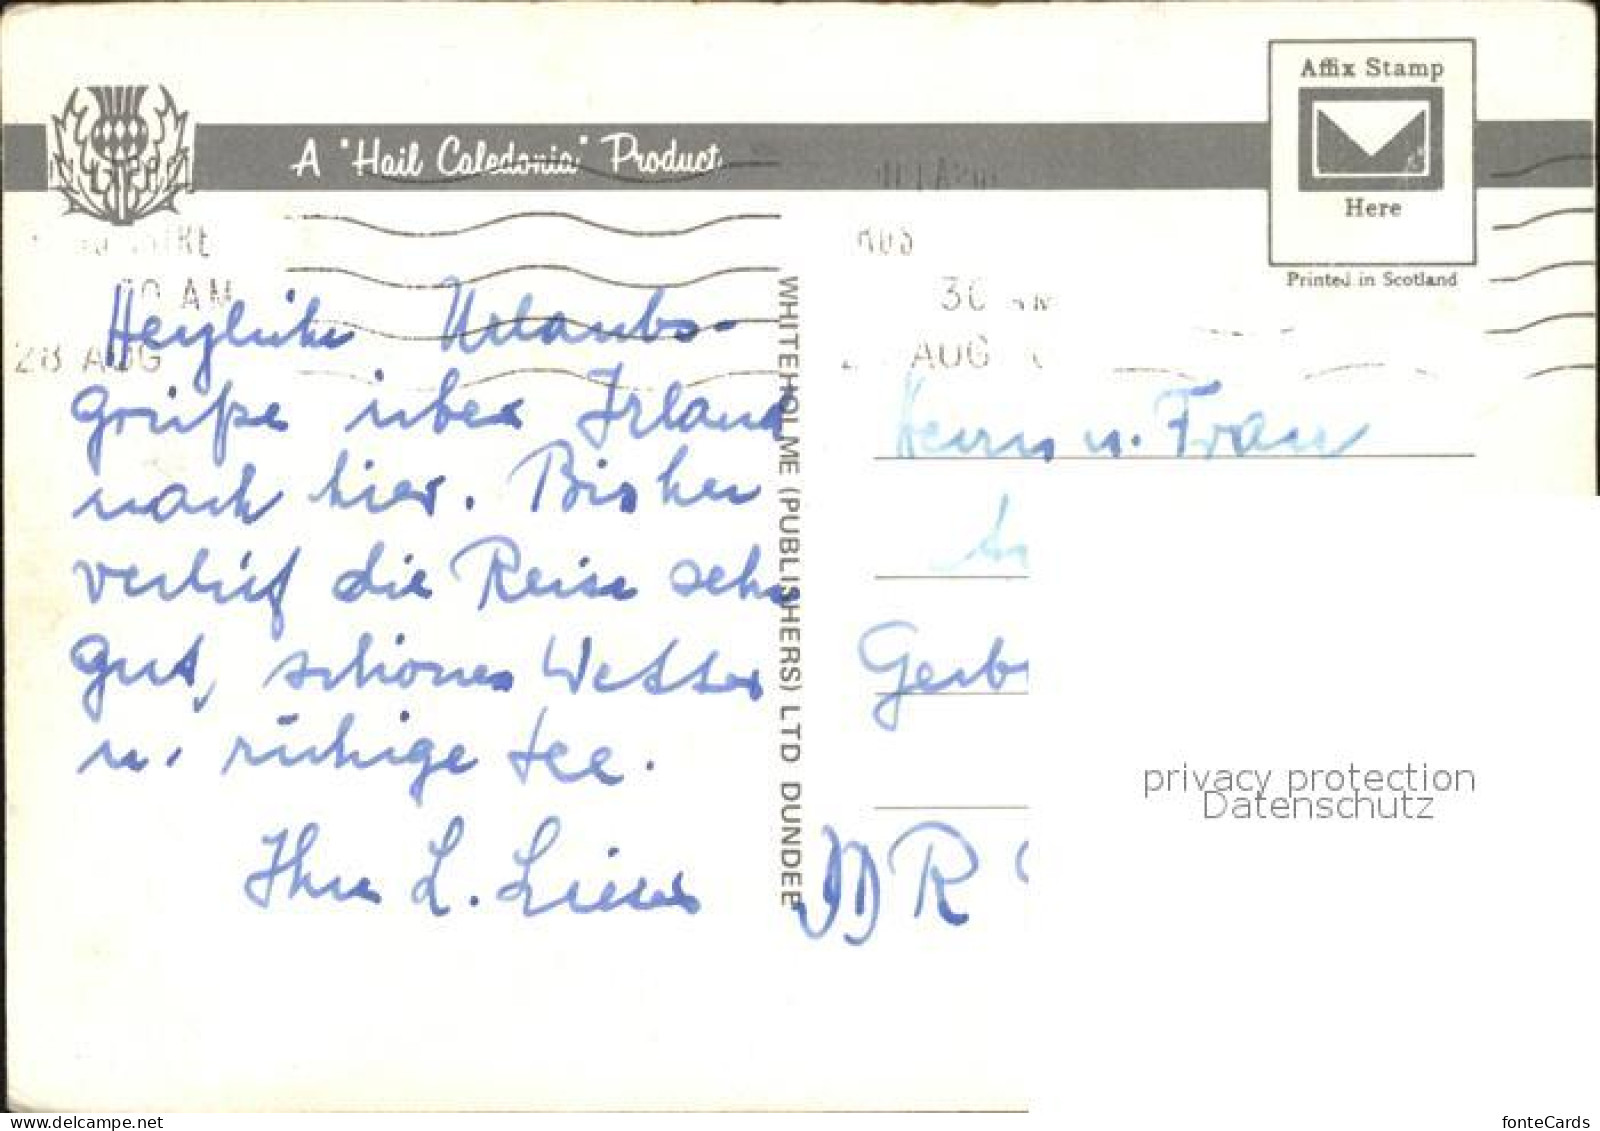 A "Hail Caledonia" Product
Affix Stamp
Here
Printed in Scotland
AM
28 AUG
30 AM
AUG
Herzliche Urlaubs-
grüße über Irland
nach hier. Bisher
verlief die Reise sehr
gut, schönes Wetter
u. ruhige See.
Ihre L.
WHITEHOLME (PUBLISHERS) LTD DUNDEE
Herrn u. Frau
DDR
privacy protection
Datenschutz
delcampe.net
fonteCards